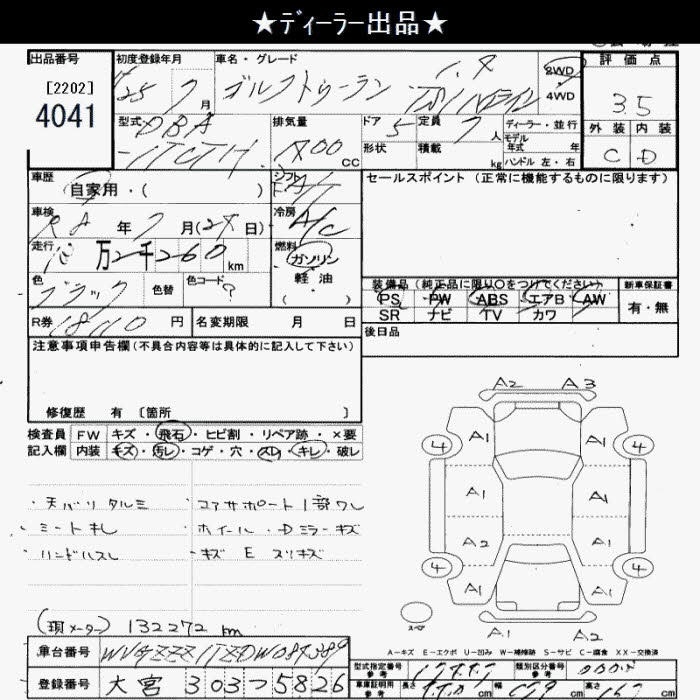 ★ディーラー出品★
出品番号
[2202]
4041
初度登録年月
25年 7月
車名・グレード
ゴルフトゥーラン
2WD
4WD
評価点
3.5
外装 内装
C D
型式
DBA
排気量
cc
ドア 5
定員 7人
形状
積載 kg
ディーラー・並行
モデル年式 年
ハンドル 左・右
車歴
自家用・( )
シフト
セールスポイント (正常に機能するものに限ります)
車検
R8年7月(28日)
冷房
A/C
走行
13万2千260km
燃料
ガソリン
軽油
( )
色
ブラック
色替
色コード ?
装備品 (純正品に限り○をつけてください)
PS PW ABS エアB AW
SR ナビ TV カワ
新車保証書
有・無
R券
18110円
名変期限 月 日
後日品
注意事項申告欄(不具合内容等は具体的に記入して下さい)
修復歴 有 〔箇所 〕
検査員記入欄
FW キズ・飛石・ヒビ割・リペア跡・×要
内装 キズ・汚レ・コゲ・穴・スレ・キレ・破レ
・天バリタルミ
・シートキレ
・ハンドルスレ
・コアサポート1部ワレ
・ホイール・Dミラーキズ
・キズ E スリキズ
(現メーター) 132272 km
A2 A3
4 A1 A1 4
A1 A1
A2 A1
4 A1 A1 4
スペア
A1 A2
A-キズ E-エクボ U-凹み W-補修跡 S-サビ C-腐食 XX-交換済
車台番号
登録番号
大宮 303 つ 5826
型式指定番号
参考
類別区分番号
参考
車車証明用
参考
長さ cm
幅 cm
高さ cm